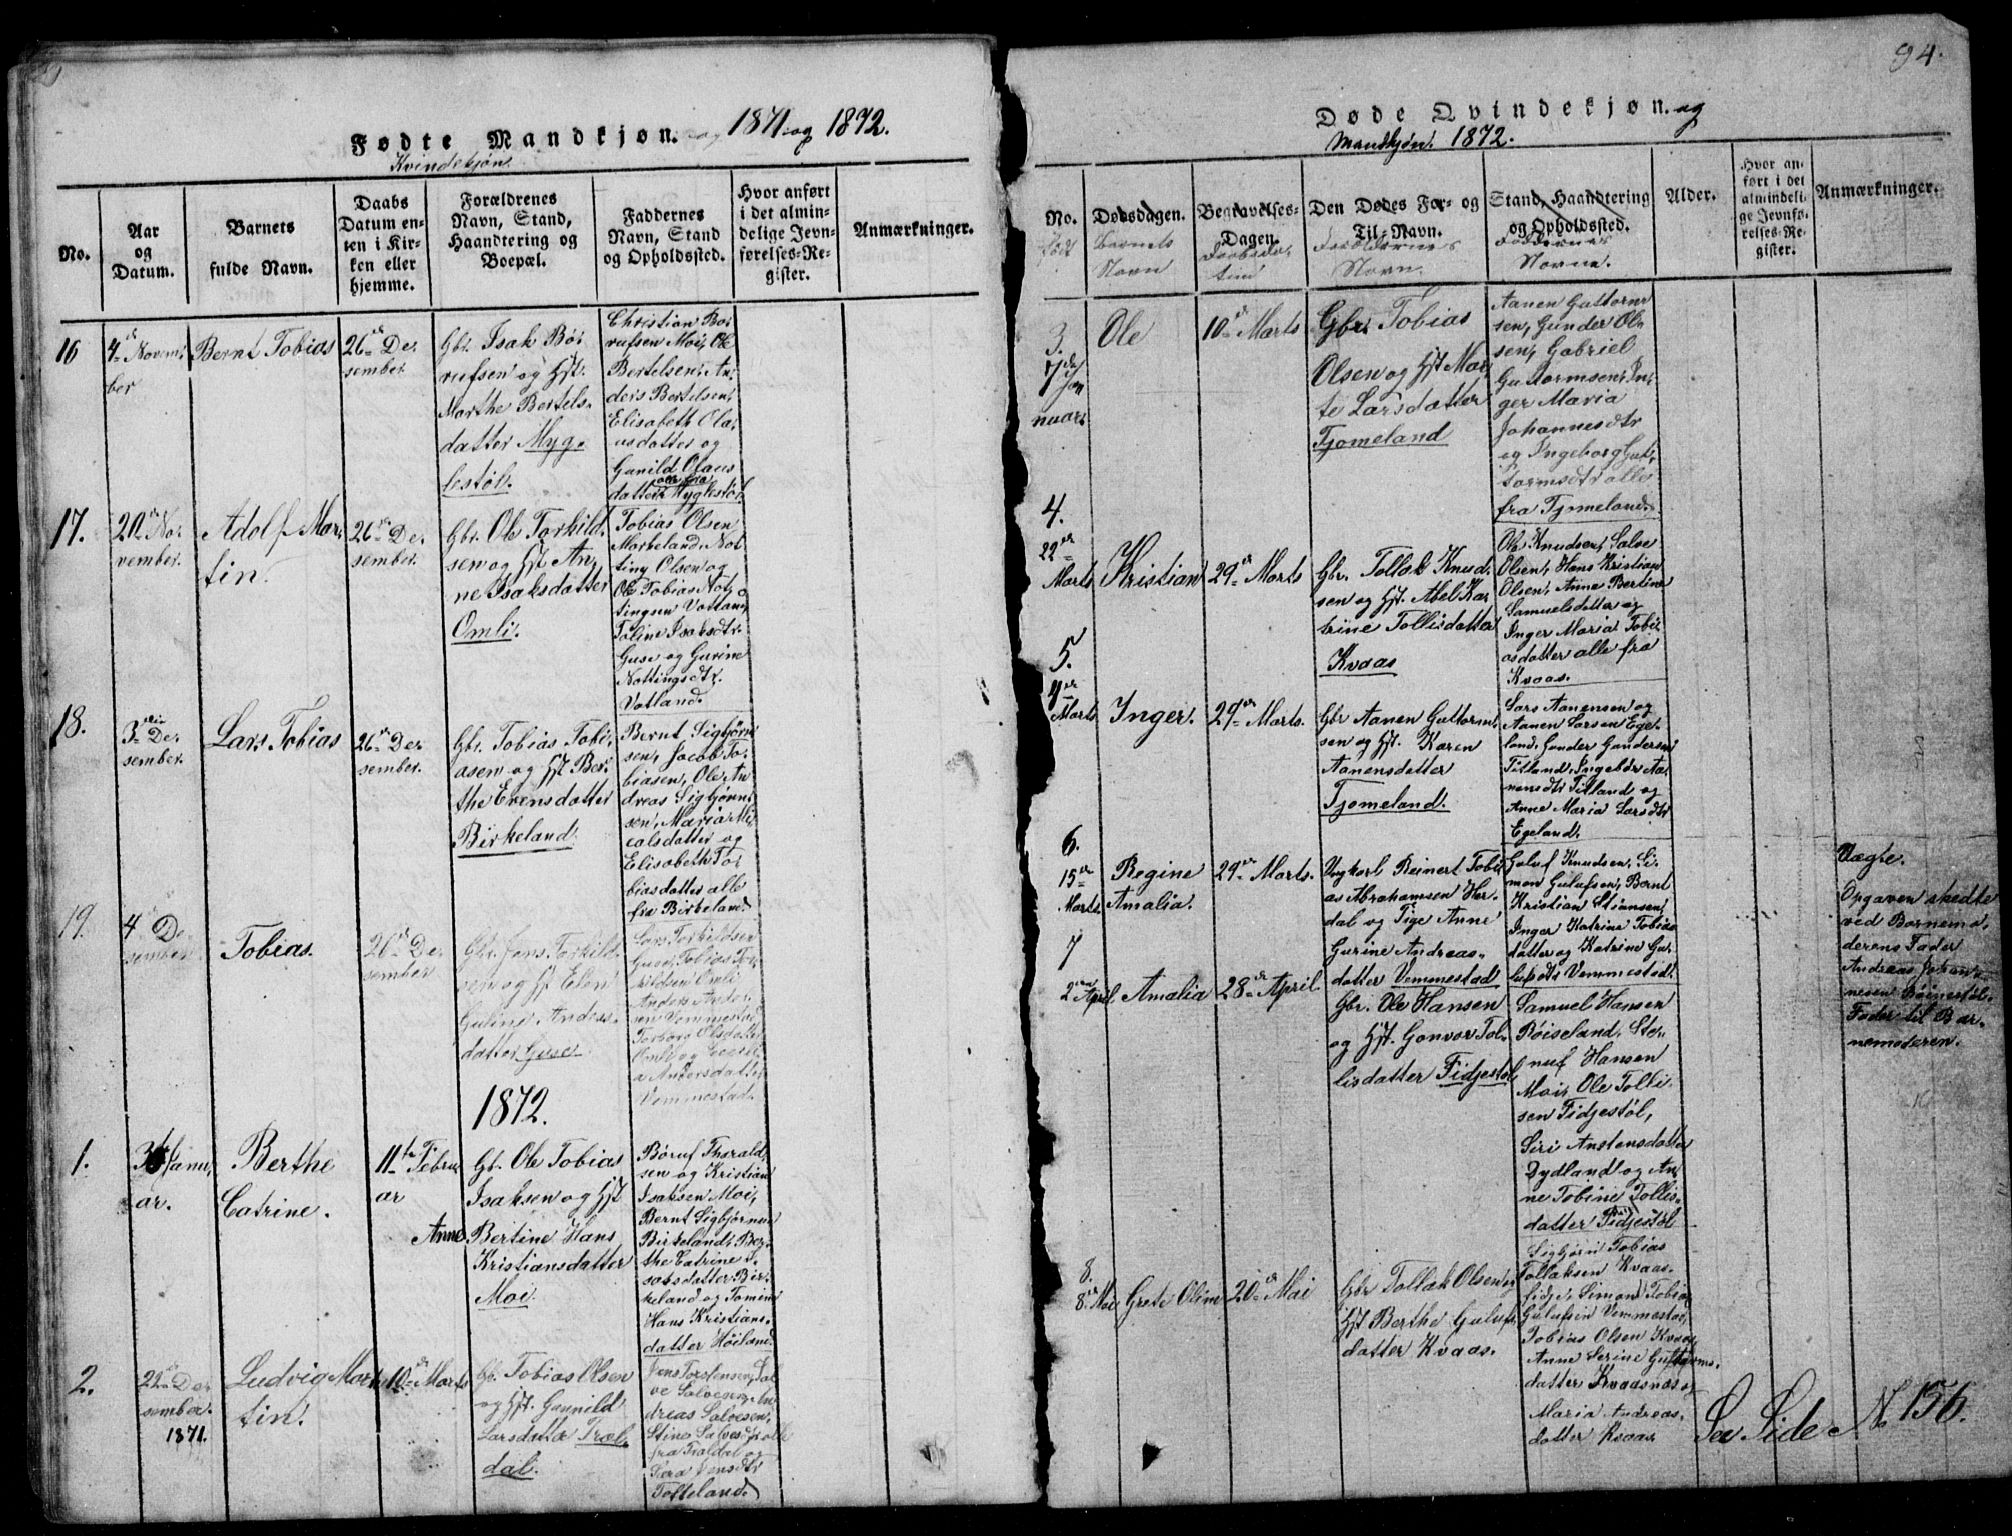 Fødte Mandkjøn. og 1871 og 1872.
Kvindekjøn.
No.
Aar
og
Datum.
Barnets
fulde Navn.
Daabs
Datum en-
ten i Kir-
ken eller
hjemme.
Forældrenes
Navn, Stand,
Haandtering og
Boepæl.
Faddernes
Navn, Stand
og Opholdssted.
Hvor anført
i det almin-
delige Jevn-
førelses-Re-
gister.
Anmærkninger.
16
4de Novem-
ber
Bernt Tobias
26de De-
sember.
Gbr. Isak Bø-
rufsen og Hst.
Marthe Bertels-
datter Myg-
lestøl.
Christian Bø-
rufsen Moi, Ole
Bertelsen, An-
ders Bertelsen,
Elisabeth Ola-
usdatter og
Gunild Olaus
datter alle fra Myglestøl
17.
20de No-
vember.
Adolf Mar-
tin.
26de De-
sember.
Gbr. Ole Torkild-
sen og Hst An-
ne Isaksdatter
Omli.
Tobias Olsen
Morkeland, Not-
ting Olsen og
Ole Tobias Not-
tingsen Vatland,
Toline Isaksdtr.
Guse og Gurine
Nottingsdtr.
Vatland.
18.
3die De-
sember.
Lars Tobias
26de De-
sember.
Gbr. Tobias Tobi-
asen og Hst Ber-
the Evensdatter
Birkeland.
Bernt Sigbjørn-
sen, Jacob To-
biasen, Ole An-
dreas Sigbjørn-
sen, Maria Mi-
calsdatter og
Elisabeth To-
biasdatter alle
fra Birkeland.
19.
4 De-
sember
Tobias.
26de De-
sember
Gbr. Jens Torkild-
sen og Hst Elen
Guline Anders-
datter Guse.
Lars Torkildsen
Guse, Tobias Tor-
kildsen Omli
Anders Ander-
sen Vemmestad
Torborg Olsdatter
Omli og
a Andersdatter
Vemmestad.
1872.
1.
Janu-
ar.
Berthe
Catrine.
11te Febru-
ar
Gb. Ole Tobias
Isaksen og Hst
Anne Bertine Hans
Kristiansdatter
Moi.
Børuf Thorald-
sen og Kristian
Isaksen Moi,
Bernt Sigbjørnsen
Birkeland, Ber-
the Catrine I-
saksdatter Bir-
keland og Tomine
Hans Kristians-
datter Høiland.
2.
22de De-
sember.
1871.
Ludvig Mar-
tin.
10de Marts
Gb. Tobias Olsen
og Hst. Gunnild
Larsdatter Træl-
dal.
Jens Torstensen, Sal-
ve Salvesen, An-
dreas Salvesen,
Stine Salvesdtr alle
fra Traldal og
Sara Jensdtr
Totteland.
94.
Døde Qvindekjøn. og
Mandkjøn. 1872.
No.
Født
Dødsdagen.
Barnets
Navn
Begravelses-
Dagen.
Daabsda-
tum
Den Dødes For- og
Til-Navn.
Forældrernes
Navn.
Stand, Haandtering
og Opholdssted.
Faddernes
Navne.
Alder.
Hvor an-
ført i det
almindeli-
ge Jevnfø-
relses-Re-
gister.
Anmærkninger.
3.
7de Ja-
nuar.
Ole
10de Marts
Gbr. Tobias
Olsen og Hst Mar-
te Larsdatter
Tjomeland
Aanen Guttorm-
sen, Gunder Ol-
sen, Gabriel
Guttormsen, In-
ger Maria
Johannesdtr
og Ingeborg Gut-
tormsdtr alle
fra Tjomeland.
4.
22de
Marts
Kristian
29de Marts
Gbr. Tollak Knud-
sen og Hst. Abel Ka-
trine Tollisdatter
Kvaas
Ole Knudsen, Salve
Olsen, Hans Kristian
Olsen, Anne Bertine
Samuelsdatter og
Inger Maria Tobi-
asdatter alle fra
Kvaas.
5.
4de
Marts
Inger.
29de Marts.
Gbr Aanen Guttorm-
sen og Hst. Karen
Aanensdatter
Tjomeland.
Lars Aanensen og
Aanen Larsen Ege-
land, Gunder Gundersen
Titland, Ingebor Aa-
nensdtr Titland og
Anne Maria Larsdtr
Egeland.
6.
15de
Marts.
Regine
Amalia.
29de Marts.
Ungkarl Reinert Tobi-
as Abrahamsen Her-
dal og Pige Anne
Gurine Andreas-
datter Vemmestad
Guluf Knudsen, Si-
mon Gulufsen, Bernt
Kristian Stiansen,
Inger Katrine Tobias-
datter og Katrine Gu-
lufsdtr Vemmestad.
Uægte.
Opgaven skedte
ved Barnemo-
derens Fader
Andreas Johan-
nesen Røinestøl-
Fader til Bar-
nemoderen.
7
2den April
Amalia
28de April
Gbr. Ole Hansen
og Hst. Gonvor Tol-
lisdatter Fidjestøl
Samuel Hansen
Røiseland, Ste-
nuf Hansen
Moi, Ole Tolli-
sen Fidjestøl,
Siri Anstensdatter
Dydland og An-
ne Tobine Tollis-
datter Fidjestøl
8.
8de Mai
Grete Oline
20de Mai
Gbr Tollak Olsen og
Hst Berthe Guluf-
datter Kvaas.
Sigbjørn Tobias
Tollaksen Kvaas-
fidje, Simon Tobias
Gulufsen Vemmestad,
Tobias Olsen Kvaas,
Anne Serine Guttorms-
datter Kvaasnas og
Maria Andreas-
datter Kvaas
See Side No 156.